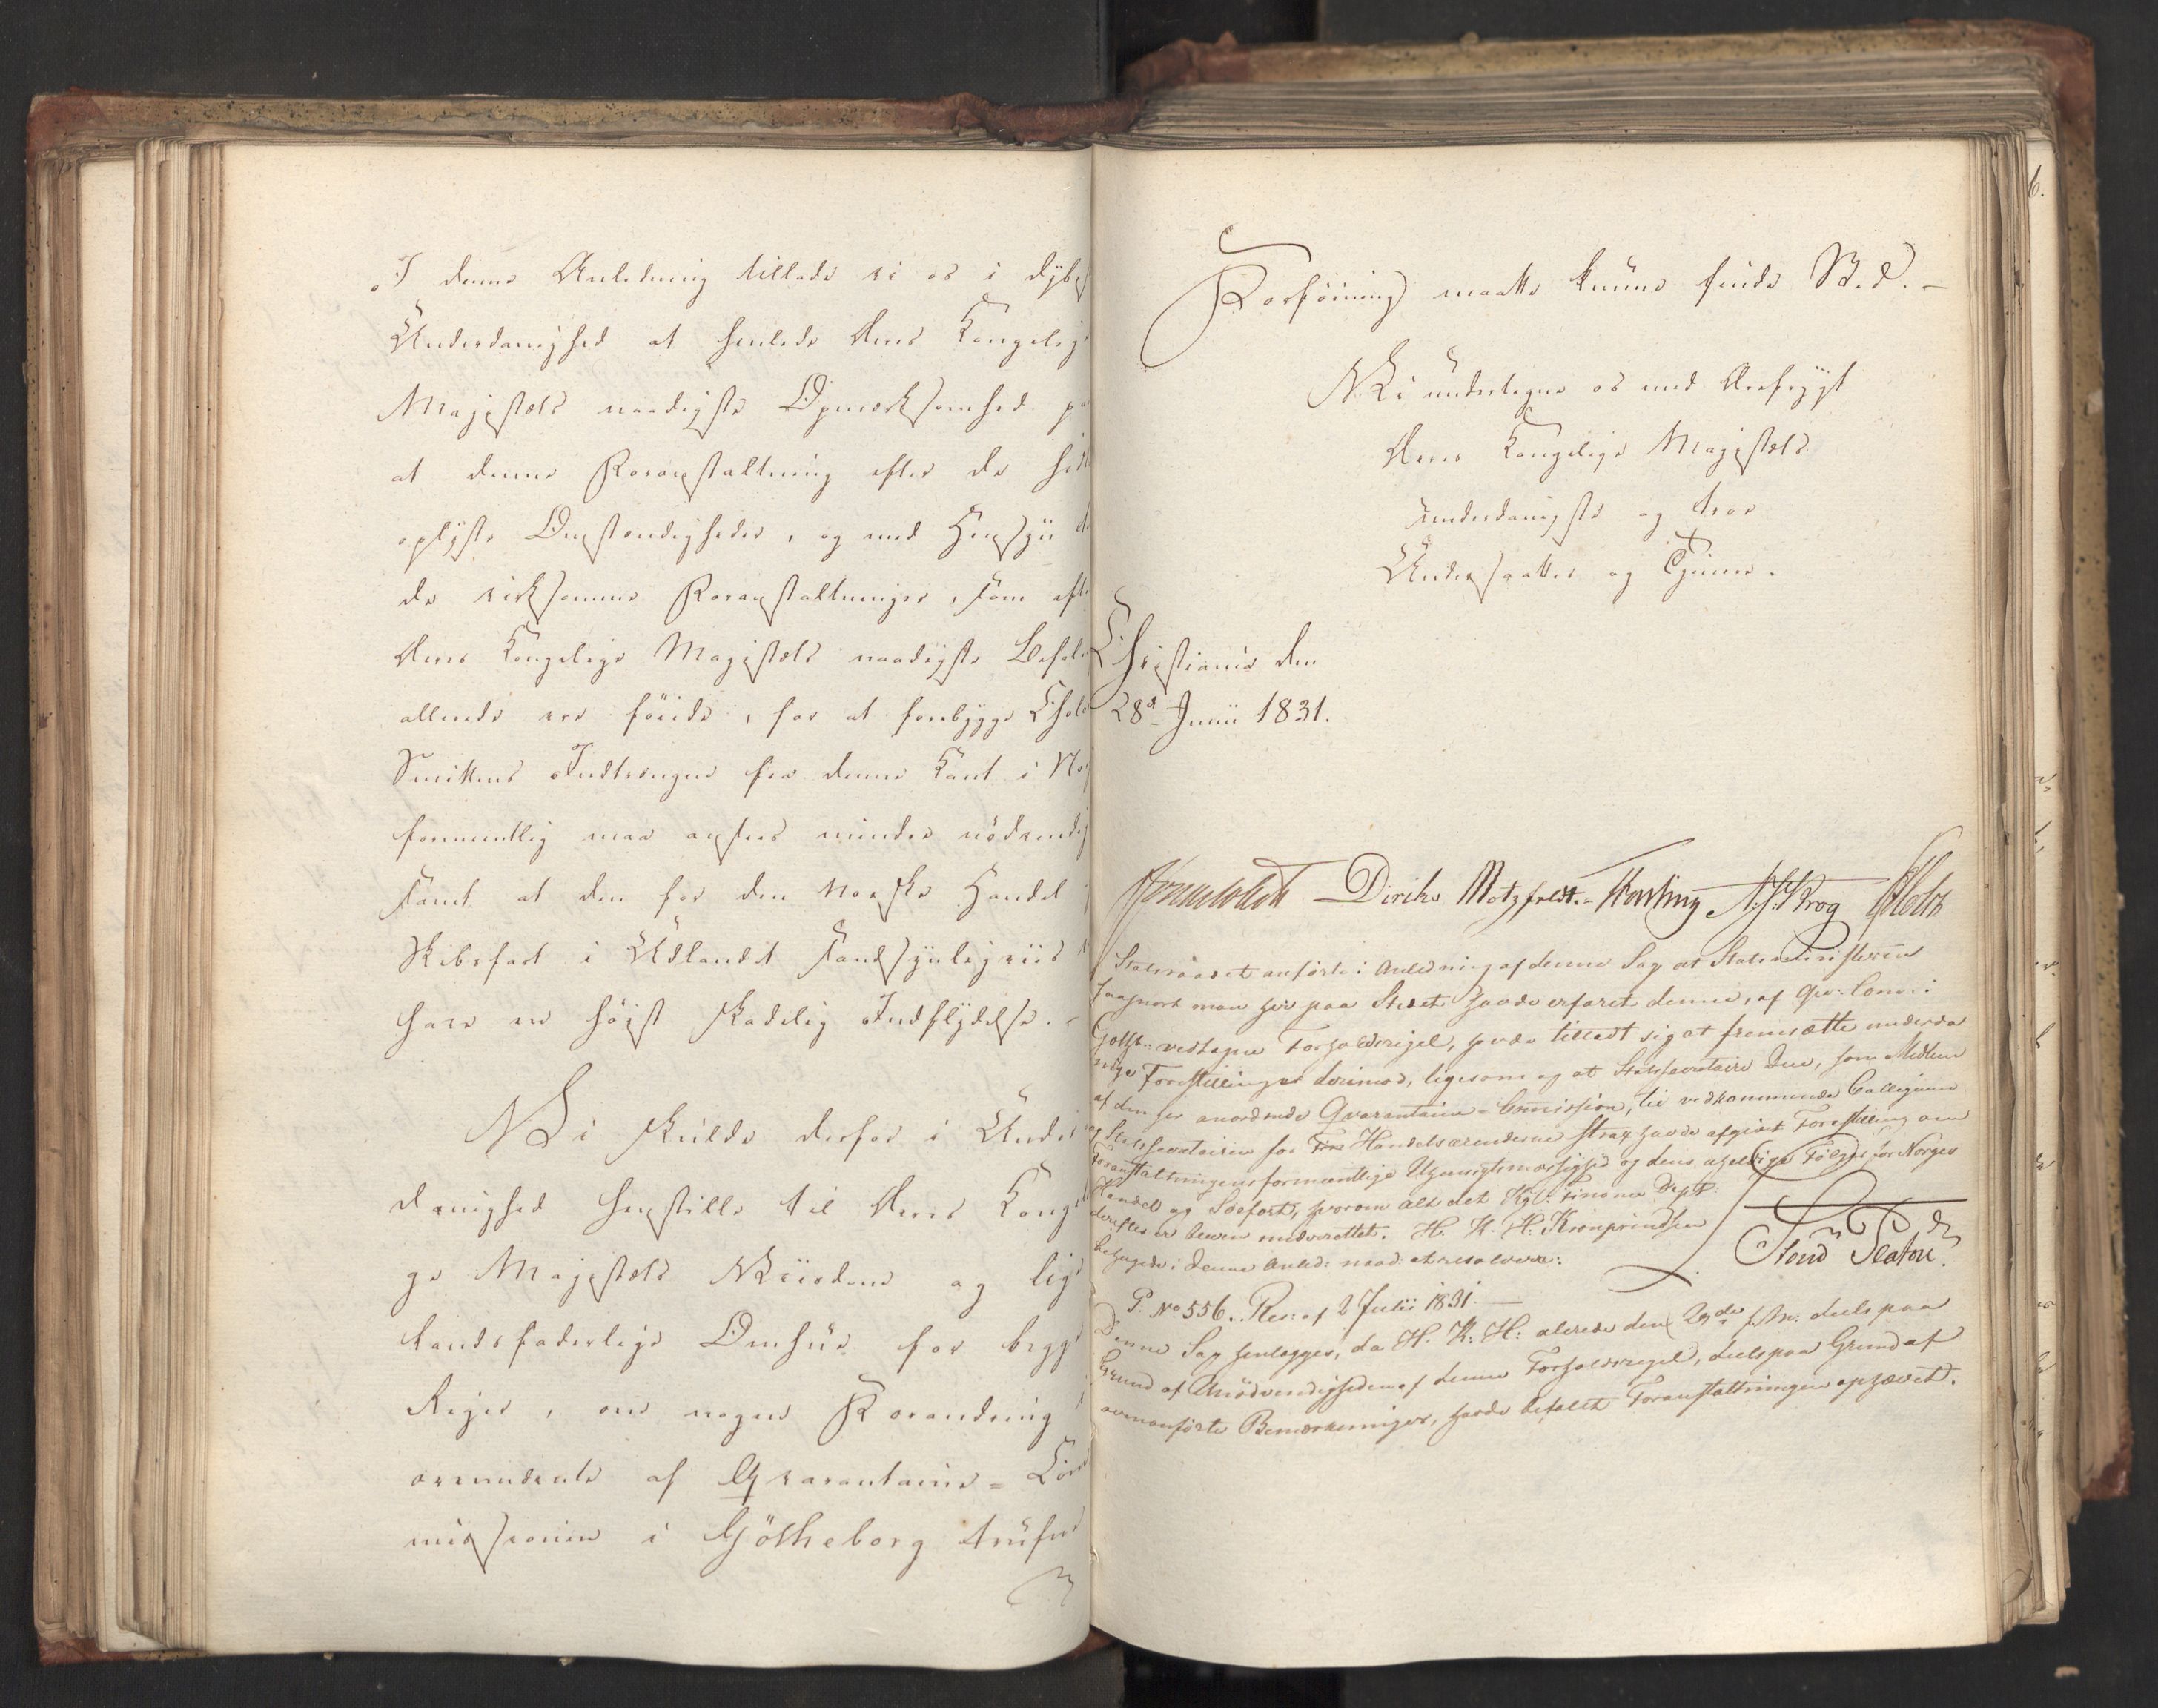 I denne Anledning tillade vi os i dybes
Underdanighed at henlede Deres Kongelige
Majestæts naadigste Opmærksomhed paa
at denne Foranstaltning efter de hidt
oplyste Omstændigheder, og med Hensyn til
de virksomme Foranstaltninger, som efte
Deres Kongelige Majestæts naadigste Befali
allerede ere föiede, for at forebygge Chole
Smittens Indtrængen fra denne Kant i No
formeentlig maa ansees mindre nödvendig
samt at den for den norske Handel
Skibsfart i Udlandet sandsynligviis
have en höist skadelig Indflydelse. -
Vi skulde derfor i Under
danighed henstille til Deres Konge
ge Majestæts Viisdom og lige
landsfaderlige Omhue for begge
Riger, om nogen Forandring i
ovennævnte af Qvarantaine-Com
missionen i Götheborg trufne
Forföining maatte kunne finde Sted. -
Vi undertegne os med Ærefrygt
Deres Kongelige Majestæts
underdanigste og troe
Undersaatter og Tjenere.
Christiania den
28d Junii 1831.
Diriks Motzfeldt. N. J. Krog
Statsraadet anförte i Anledning af denne Sag at Statsministeren
saasnart man her paa Stedet havde erfaret denne, af Qv: Comm:
Gothb: vedtagne Forholdsregel, havde tilladt sig at fremsætte underda
nige Forestillinger derimod, ligesom og at Statssecretaire Due, som Medlem
af den her anordnede Qvarantaine-Comission, til vedkommende Collegium
og Statssecretairen for Handelsærenderne strax havde afgivet Forestilling om
Foranstaltningens formeentlige Uhensigtsmæssighed og dens uheldige Fölger for Norges
Handel og Söefart, hvorom alt det Kgl: Finance Dept:
derefter er bleven underrettet. H. K. H: Kronprindsen
behagede i denne Anled: naad: at resolvere:
P. No 556. Res: af 2 Julii 1831. -
Denne Sag henlægges, da H. K. H: allerede den 29de f. M: deels paa
Grund af Unödvendigheden af denne Forholdsregel, deels paa Grund af
ovenanförte Bemærkninger, havde befalet Foranstaltningen ophævet.